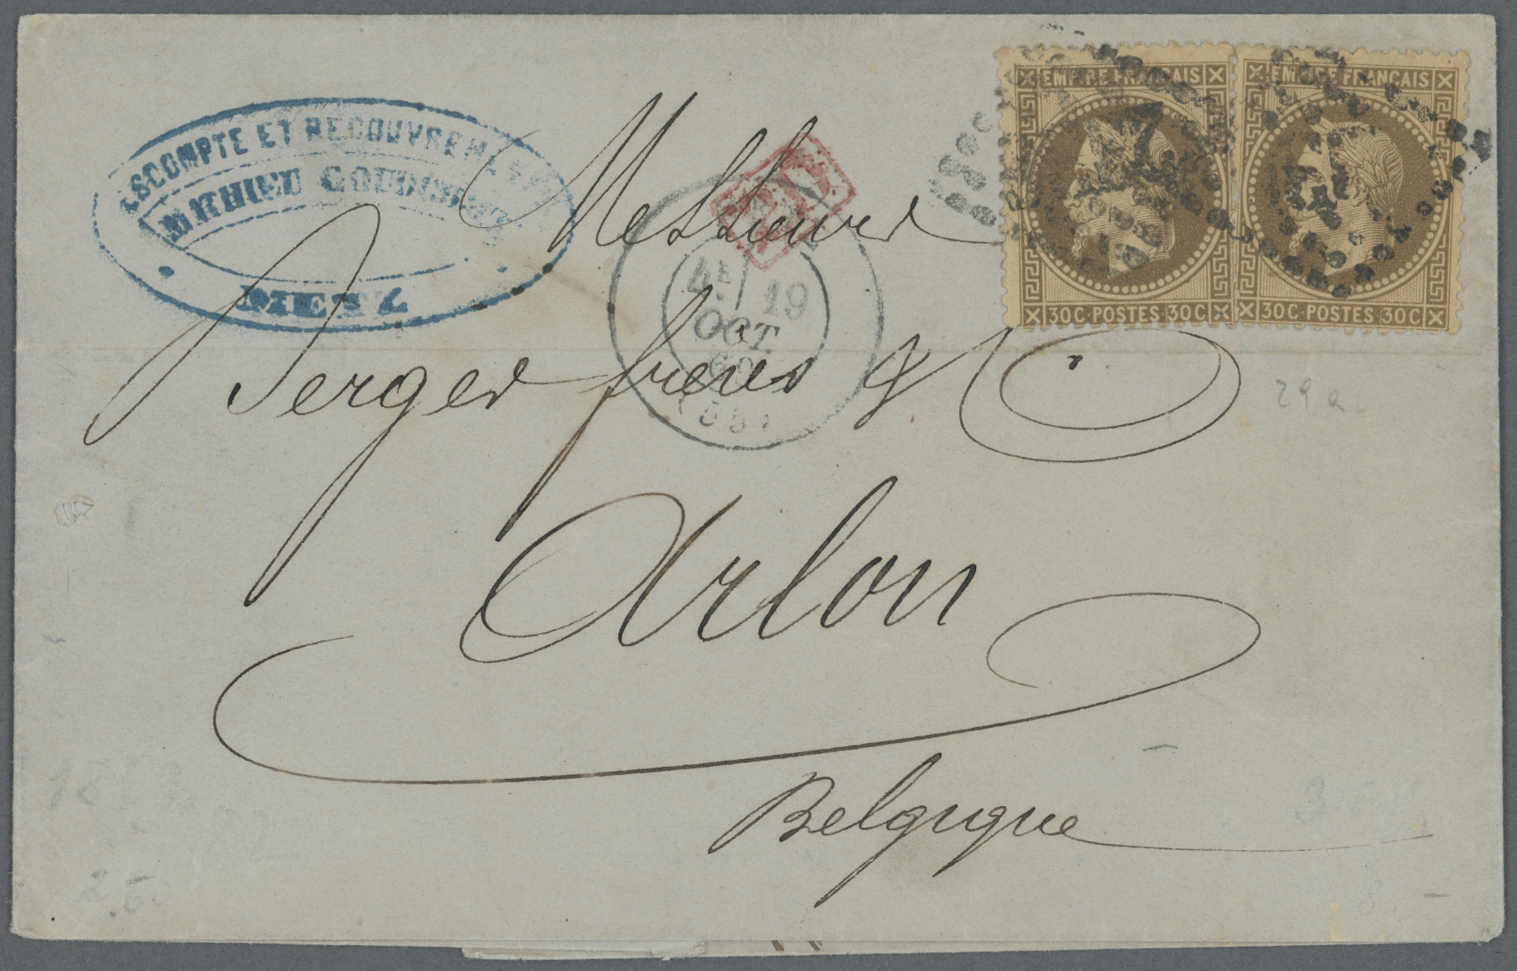 ESCOMPTE ET RECOUVREMENTS
MATHIEU
METZ
Messieurs
Berger frères & C
Arlon
Belgique
P.D.
4E 19
OCT.
(55)
EMPIRE FRANÇAIS
30C POSTES 30C
EMPIRE FRANÇAIS
30C POSTES 30C
29 a
2.50